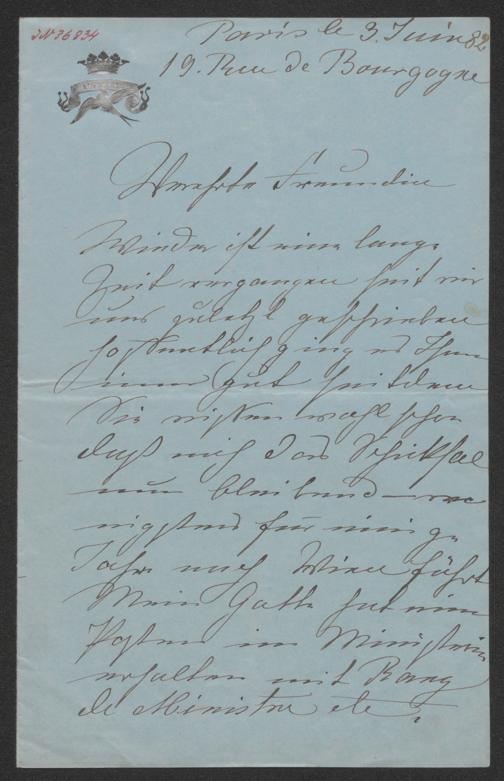 IN 76834
Paris le 3. Juin 82
19. Rue de Bourgogne
Verehrte Freundin
Wieder ist eine lange
Zeit vergangen seit wir
uns zuletzt geschrieben
hoffentlich ging es Ihnen
immer gut seitdem
Sie wissen wohl schon
daß mich das Schicksal
nun bleibend – we
nigstens für einige
Jahre nach Wien führt
Mein Gatte hat einen
Posten im Ministerium
erhalten mit Rang
de Ministre etc.